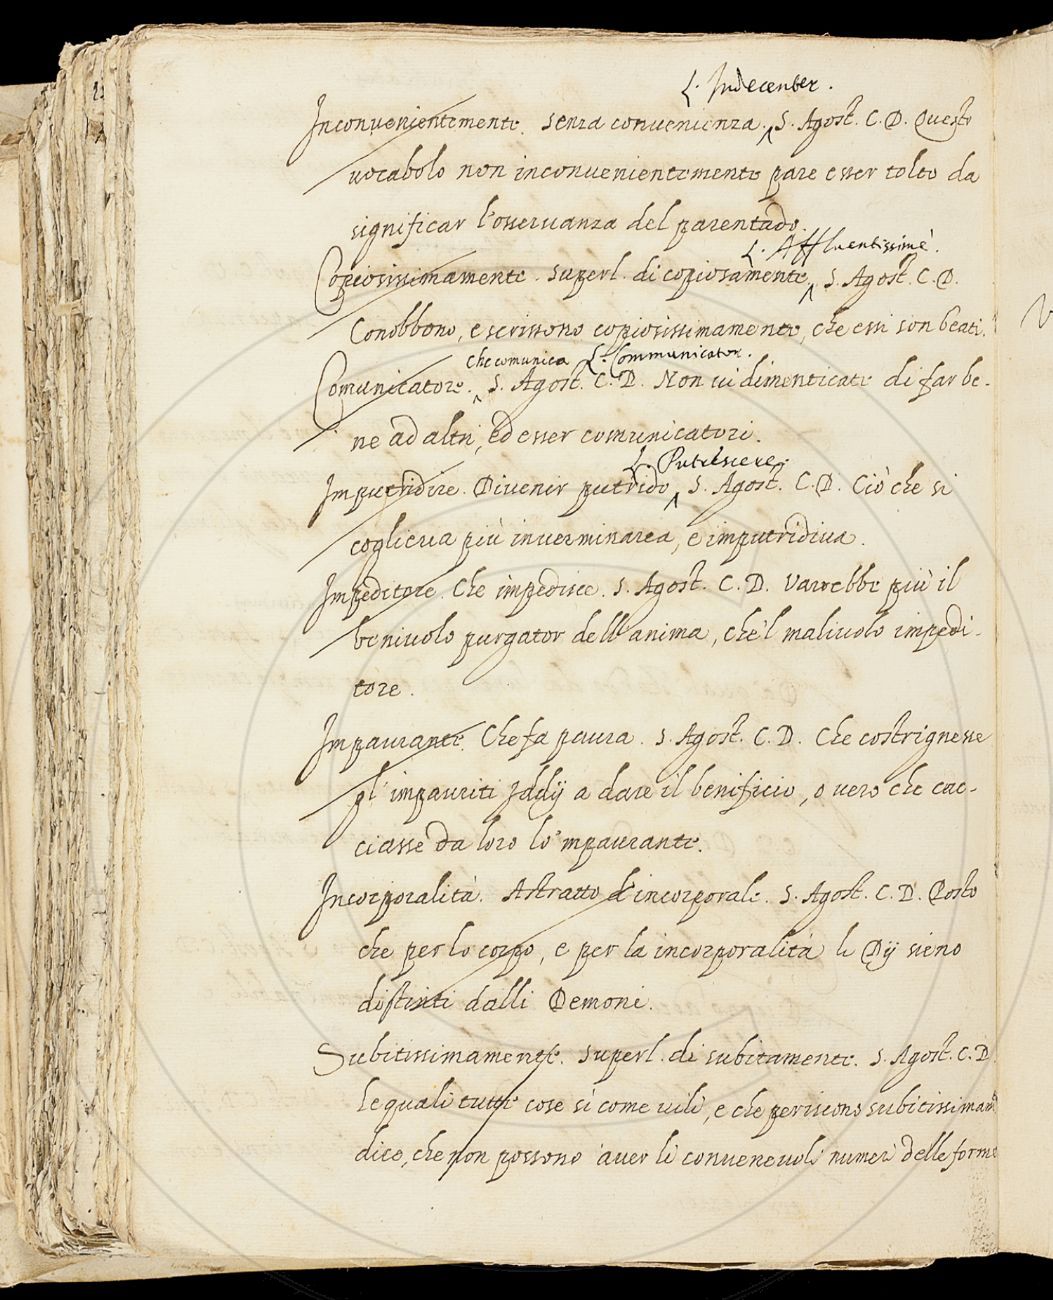 L. Indecenter.
Inconuenientemente. Senza conuenienza. S. Agost. C. D. Questo
uocabolo non inconuenientemente pare esser tolto da
significar l'osseruanza del parentado.
L. Affluentissimè.
Copiosissimamente. Superl. di copiosamente, S. Agost. C. D.
Conobbono, e scrissono copiosissimamente, che essi son beati.
che comunica L. Communicator.
Comunicatore. S. Agost. C. D. Non ui dimenticate di far be-
ne ad altri, ed esser comunicatori.
L. Putrescere.
Imputridire. Diuenir putrido S. Agost. C. D. Ciò che si
coglieua più inuerminaua, e imputridiua.
Impeditore. Che impedisce. S. Agost. C. D. Varrebbe più il
beniuolo purgator dell'anima, che'l maliuolo impedi-
tore.
Impaurante. Che fa paura. S. Agost. C. D. Che costrignesse
gl'impauriti Iddij a dare il benificio, o uero che cac-
ciasse da loro lo 'mpaurante.
Incorporalità. Astratto d'incorporale. S. Agost. C. D. Posto
che per lo corpo, e per la incorporalità li Dij sieno
distinti dalli Demoni.
Subitissimamente. Superl. di subitamente. S. Agost. C. D.
Le quali tutte cose sì come uili, e che periscono subitissimam.
dice, che non possono auer li conueneuoli numeri delle forme